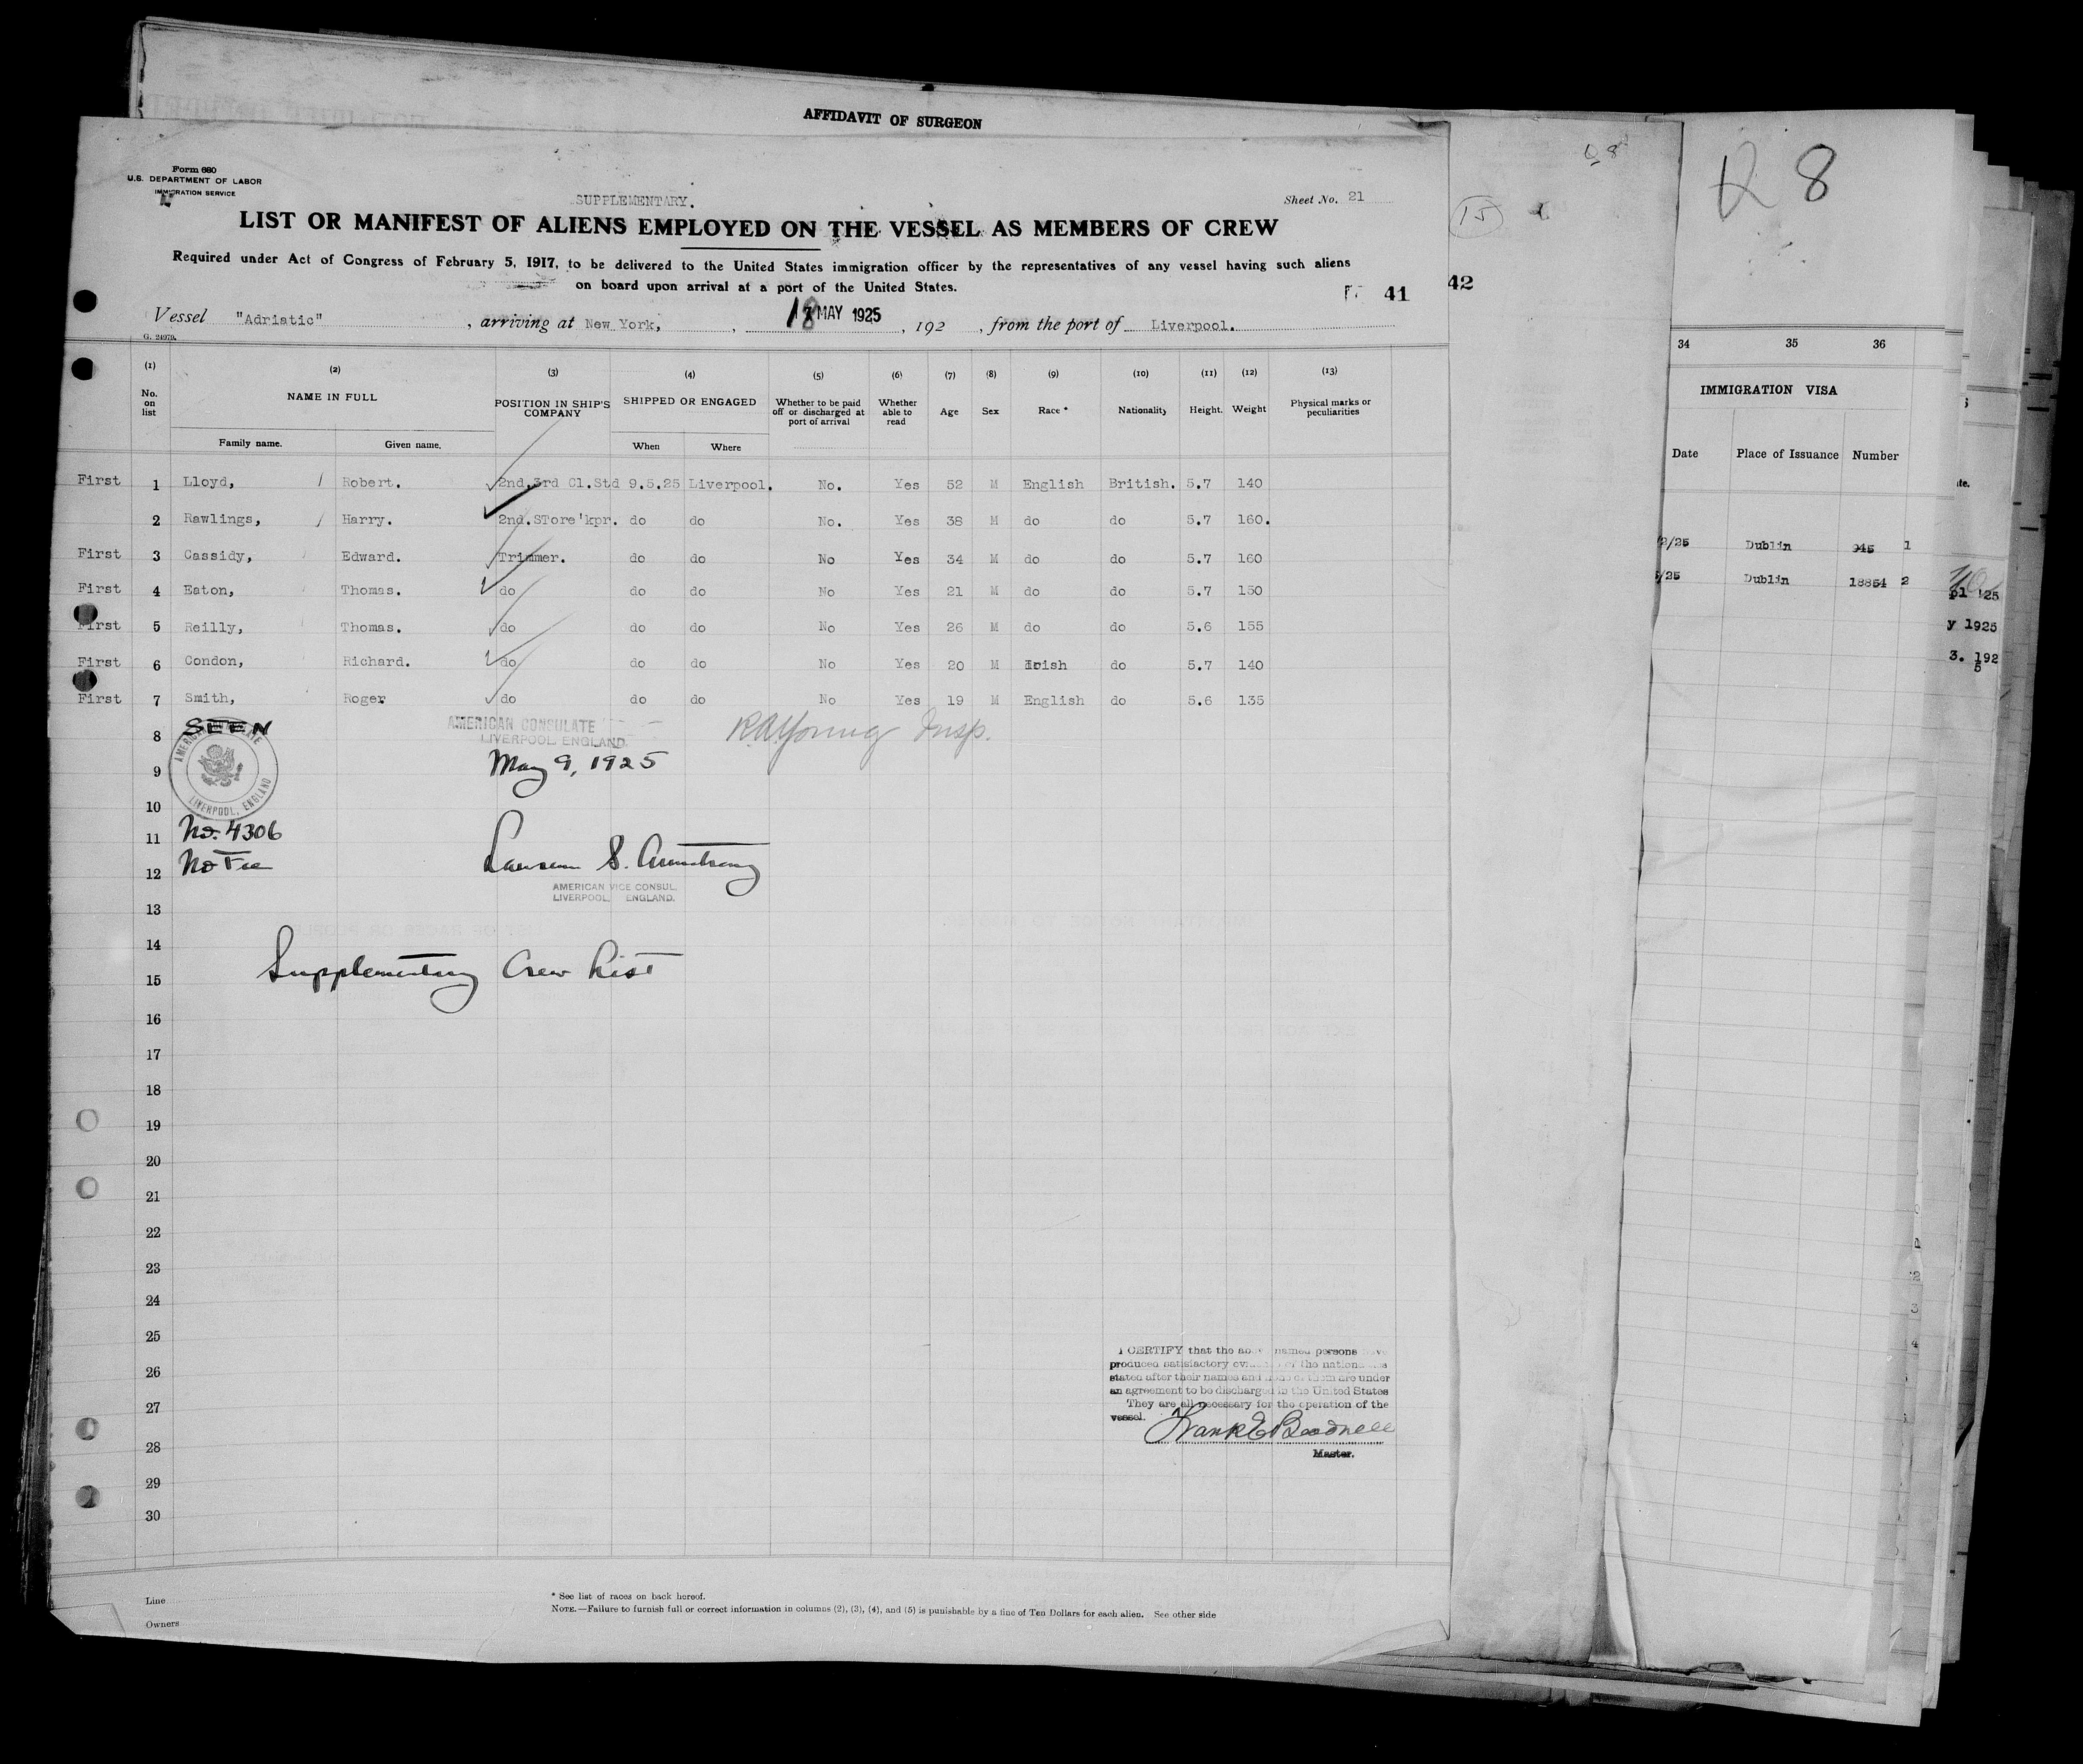 AFFIDAVIT OF SURGEON
Form 680
U.S. DEPARTMENT OF LABOR
IMMIGRATION SERVICE
SUPPLEMENTARY.
Sheet No. 21
LIST OR MANIFEST OF ALIENS EMPLOYED ON THE VESSEL AS MEMBERS OF CREW
Required under Act of Congress of February 5, 1917, to be delivered to the United States immigration officer by the representatives of any vessel having such aliens
on board upon arrival at a port of the United States.
41 42
Vessel "Adriatic", arriving at New York, , 18 MAY 1925, 192 , from the port of Liverpool.
G. 24979.
(1) (2) (3) (4) (5) (6) (7) (8) (9) (10) (11) (12) (13)
No. on list NAME IN FULL POSITION IN SHIP'S COMPANY SHIPPED OR ENGAGED Whether to be paid off or discharged at port of arrival Whether able to read Age Sex Race * Nationality Height. Weight Physical marks or peculiarities
Family name. Given name. When Where
First 1 Lloyd, Robert. 2nd.3rd Cl.Std 9.5.25 Liverpool. No. Yes 52 M English British. 5.7 140
2 Rawlings, Harry. 2nd.STore'kpr. do do No. Yes 38 M do do 5.7 160.
First 3 Cassidy, Edward. Trimmer. do do No Yes 34 M do do 5.7 160
First 4 Eaton, Thomas. do do do No Yes 21 M do do 5.7 150
First 5 Reilly, Thomas. do do do No Yes 26 M do do 5.6 155
First 6 Condon, Richard. do do do No Yes 20 M Irish do 5.7 140
First 7 Smith, Roger do do do No Yes 19 M English do 5.6 135
SEEN
AMERICAN CONSULATE
LIVERPOOL, ENGLAND.
RA Young Insp.
8
May 9, 1925
9
AMERICAN CONSULATE
LIVERPOOL, ENGLAND
10
No. 4306
11
No Fee
S. Armstrong
12
AMERICAN VICE CONSUL.
LIVERPOOL, ENGLAND.
13
14
Supplementary Crew List
15
16
17
18
19
20
21
22
23
24
25
26
27
28
29
30
I CERTIFY that the above named persons have
produced satisfactory evidence of the nationalities
stated after their names and none of them are under
an agreement to be discharged in the United States
They are all necessary for the operation of the
vessel.
Frank E Beadnell
Master.
Line
Owners
* See list of races on back hereof.
NOTE.—Failure to furnish full or correct information in columns (2), (3), (4), and (5) is punishable by a fine of Ten Dollars for each alien. See other side
15
R 8
34 35 36
IMMIGRATION VISA
Date Place of Issuance Number
2/25 Dublin 945 1
/25 Dublin 18854 2
'25
y 1925
3. 192
5